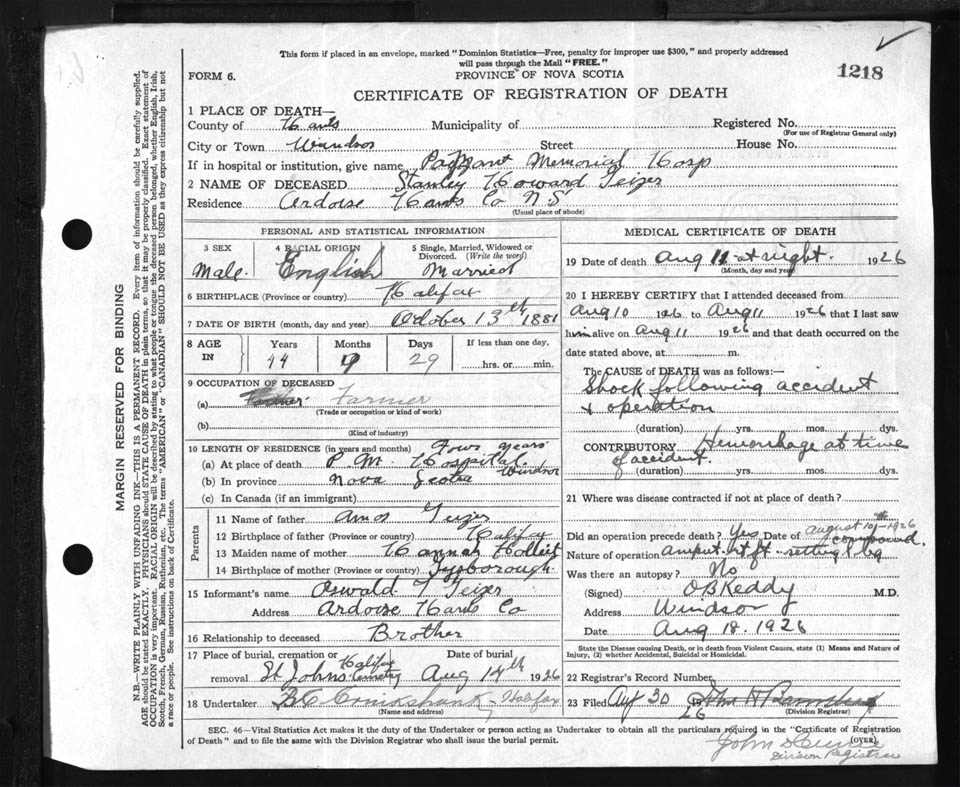 This form if placed in an envelope, marked "Dominion Statistics—Free, penalty for improper use $300," and properly addressed
will pass through the Mail "FREE."
FORM 6.
PROVINCE OF NOVA SCOTIA
1218
CERTIFICATE OF REGISTRATION OF DEATH
1 PLACE OF DEATH—
County of Hants Municipality of Registered No.
(For use of Registrar General only)
City or Town Windsor Street House No.
If in hospital or institution, give name Payzant Memorial Hosp
2 NAME OF DECEASED Stanley Howard Teizer
Residence Ardoise Hants Co N.S
(Usual place of abode)
PERSONAL AND STATISTICAL INFORMATION
3 SEX
Male
4 RACIAL ORIGIN
English
5 Single, Married, Widowed or Divorced. (Write the word)
Married
6 BIRTHPLACE (Province or country) Halifax
7 DATE OF BIRTH (month, day and year) October 13th 1881
8 AGE IN
Years Months Days If less than one day,
44 9 29 hrs. or min.
9 OCCUPATION OF DECEASED
(a) Farmer
(Trade or occupation or kind of work)
(b)
(Kind of industry)
10 LENGTH OF RESIDENCE (in years and months) Four years
(a) At place of death P. M. Hospital Windsor
(b) In province Nova Scotia
(c) In Canada (if an immigrant)
Parents
11 Name of father Amos Teizer
12 Birthplace of father (Province or country) Halifax
13 Maiden name of mother Hannah
14 Birthplace of mother (Province or country)
15 Informant's name Oswald T Teizer
Address Ardoise Hants Co
16 Relationship to deceased Brother
17 Place of burial, cremation or removal St Johns Halifax Cemetery
Date of burial
Aug 14th 1926
18 Undertaker Cruikshank - Halifax
(Name and address)
MEDICAL CERTIFICATE OF DEATH
19 Date of death Aug 11 at night. 1926
(Month, day and year)
20 I HEREBY CERTIFY that I attended deceased from
Aug 10 1926 to Aug 11 1926 that I last saw
him alive on Aug 11 1926 and that death occurred on the
date stated above, at m.
The CAUSE of DEATH was as follows:—
Shock following accident
& operation
(duration) yrs. mos. dys.
CONTRIBUTORY Hemorrhage at time
of accident.
(duration) yrs. mos. dys.
21 Where was disease contracted if not at place of death?
Did an operation precede death? Yes Date of August 10th - 1926
Nature of operation amput. rt. ft - setting l leg compound.
Was there an autopsy? No
(Signed) OB Keddy M.D.
Address Windsor
Date Aug 18. 1926
State the Disease causing Death, or in death from Violent Causes, state (1) Means and Nature of Injury, (2) whether Accidental, Suicidal or Homicidal.
22 Registrar's Record Number
23 Filed Aug 30 1926
(Division Registrar)
SEC. 46—Vital Statistics Act makes it the duty of the Undertaker or person acting as Undertaker to obtain all the particulars required in the "Certificate of Registration
of Death" and to file the same with the Division Registrar who shall issue the burial permit.
(OVER)
John
Division Registrar
MARGIN RESERVED FOR BINDING
N.B.—WRITE PLAINLY WITH UNFADING INK—THIS IS A PERMANENT RECORD. Every item of information should be carefully supplied.
AGE should be stated EXACTLY. PHYSICIANS should STATE CAUSE OF DEATH in plain terms, so that it may be properly classified. Exact statement of
OCCUPATION is very important. RACIAL ORIGIN will be described by stating to what people or tongue the deceased person belonged, whether English, Irish,
Scotch, French, German, Russian, Ruthenian, etc. The terms "AMERICAN" or "CANADIAN" SHOULD NOT BE USED as they express citizenship but not
a race or people. See instructions on back of Certificate.